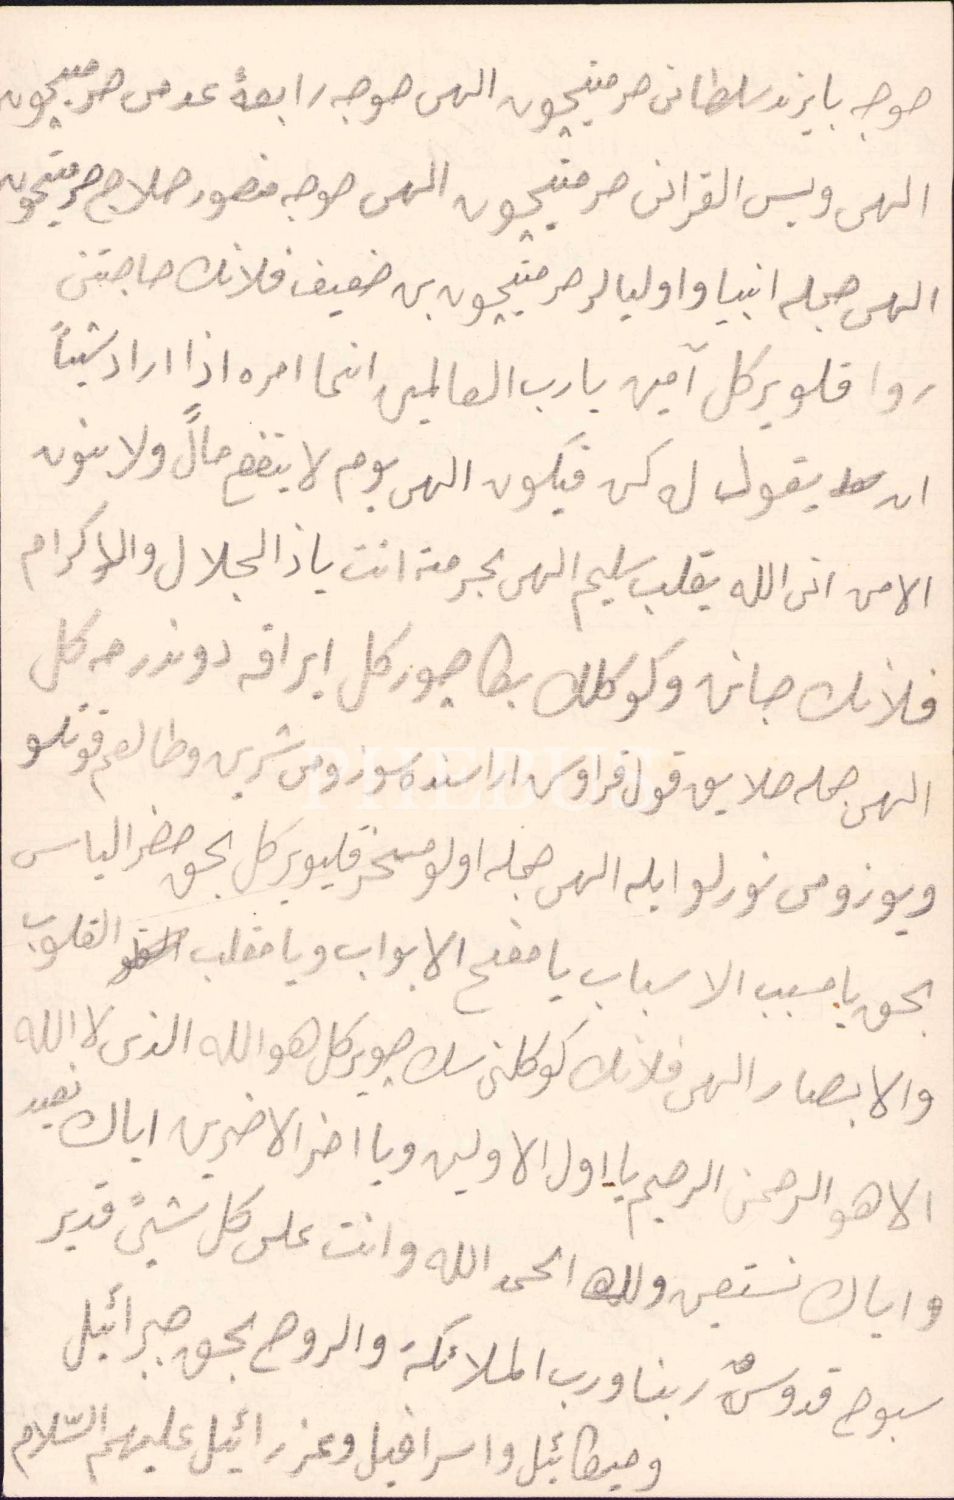 خوجه بايزند سلطانى حرمتيچون الهى خوجه رابعهٔ عدمى حرمتيچون
الهى ويس القرانى حرمتيچون الهى خوجه منصور حلاج حرمتيچون
الهى جمله انبيا و اوليالر حرمتيچون بن ضعيف فلانك حاجتنى
روا قلويركل آمين يارب العالمين انما امره اذا اراد شيئاً
ان يقول له كن فيكون الهى يوم لا ينفع مالً ولا بنون
الا من اتى الله بقلب سليم الهى بحرمة انت ياذالجلال والاكرام
فلانك جانى وكوكلك بكا چويركل ايراقه دوندرمه كل
الهى جمله خلايق قول قراوش اراسنده سوزومى شرين وطالعم قوتلو
ويوزومى نورلو ايله الهى جمله اولو مسخر قليويركل بحق خضر الياس
بحق يا مسبب الاسباب يا مفتح الابواب ويا مقلب القلوب
والابصار الهى فلانك كوكلنى سك چويركل هوالله الذى لا الله
الا هو الرحمن الرحيم يا اول الاولين ويا اخر الاخرين اياك نعبد
واياك نستعين ولله الحمد الله وانت على كل شيئً قدير
سبوح قدوسٌ ربنا ورب الملائكة والروح بحق جبرائيل
وميكائيل واسرافيل وعزرائيل عليهم السّلام
PHEBUS